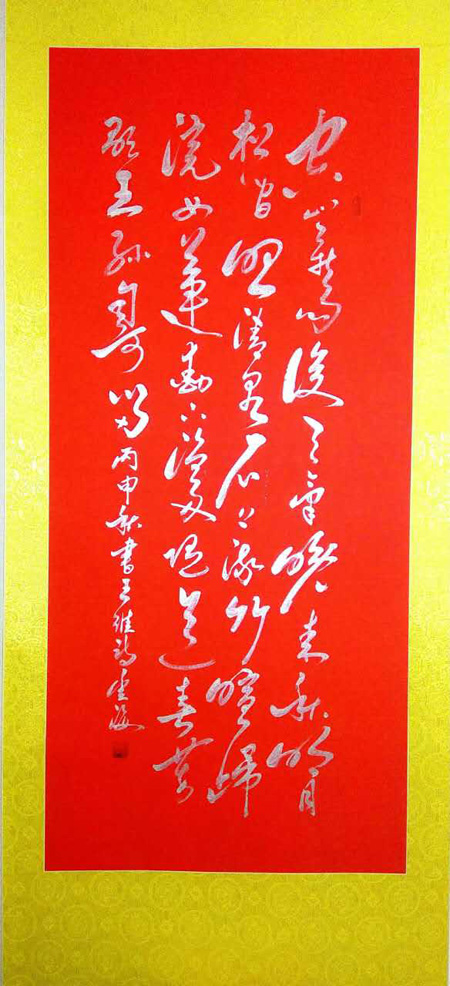 空山新雨後天氣晚来秋明月
松間照清泉石上流竹喧歸
浣女蓮動下漁舟隨意春芳
歇王孫自可留丙申秋書王維詩